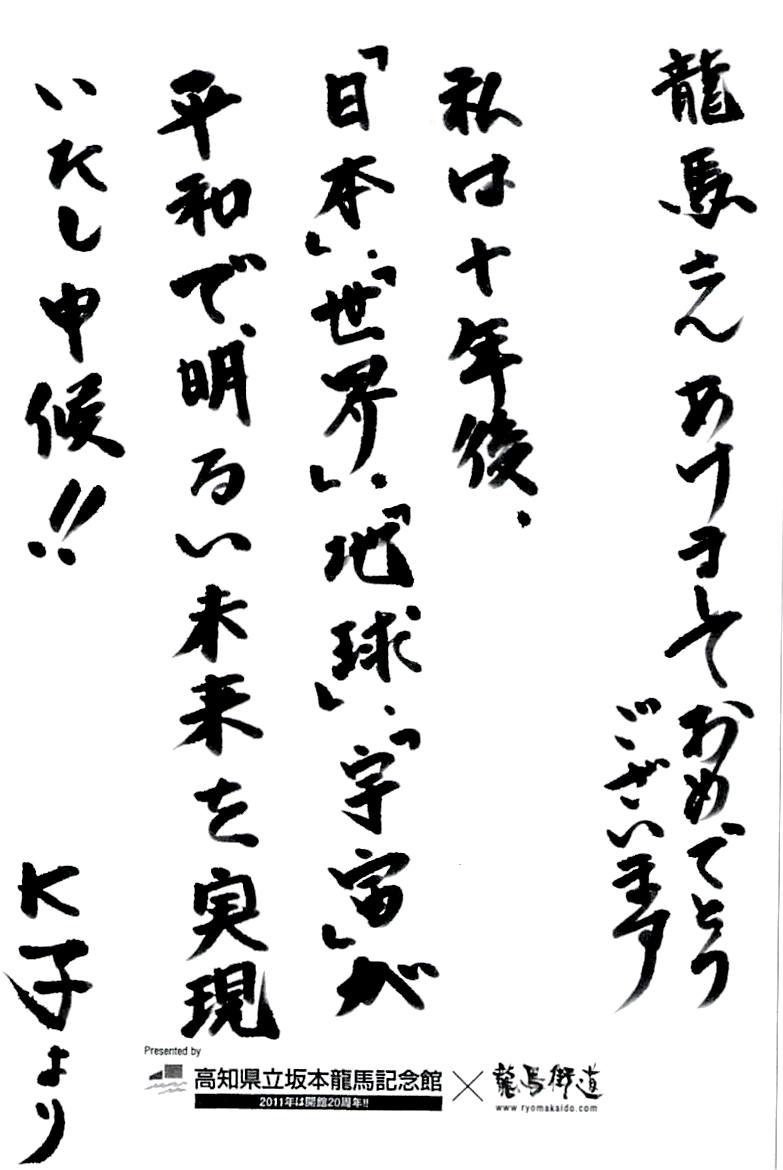 龍馬さんあけましておめでとう
ございます
私は十年後、
「日本」、「世界」、「地球」、「宇宙」が
平和で、明るい未来を実現
いたし申候!!
K子より
Presented by
高知県立坂本龍馬記念館
2011年は開館20周年!!
×
龍馬街道
www.ryomakaido.com